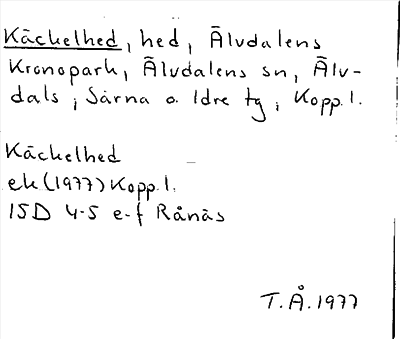 Käckelhed, hed, Älvdalens
Kronopark, Älvdalens sn, Älv-
dals, Särna o. Idre tg, Kopp.l.
Käckelhed
ek (1977) Kopp.l.
15D 4-5 e-f Rånäs
T.Å. 1977